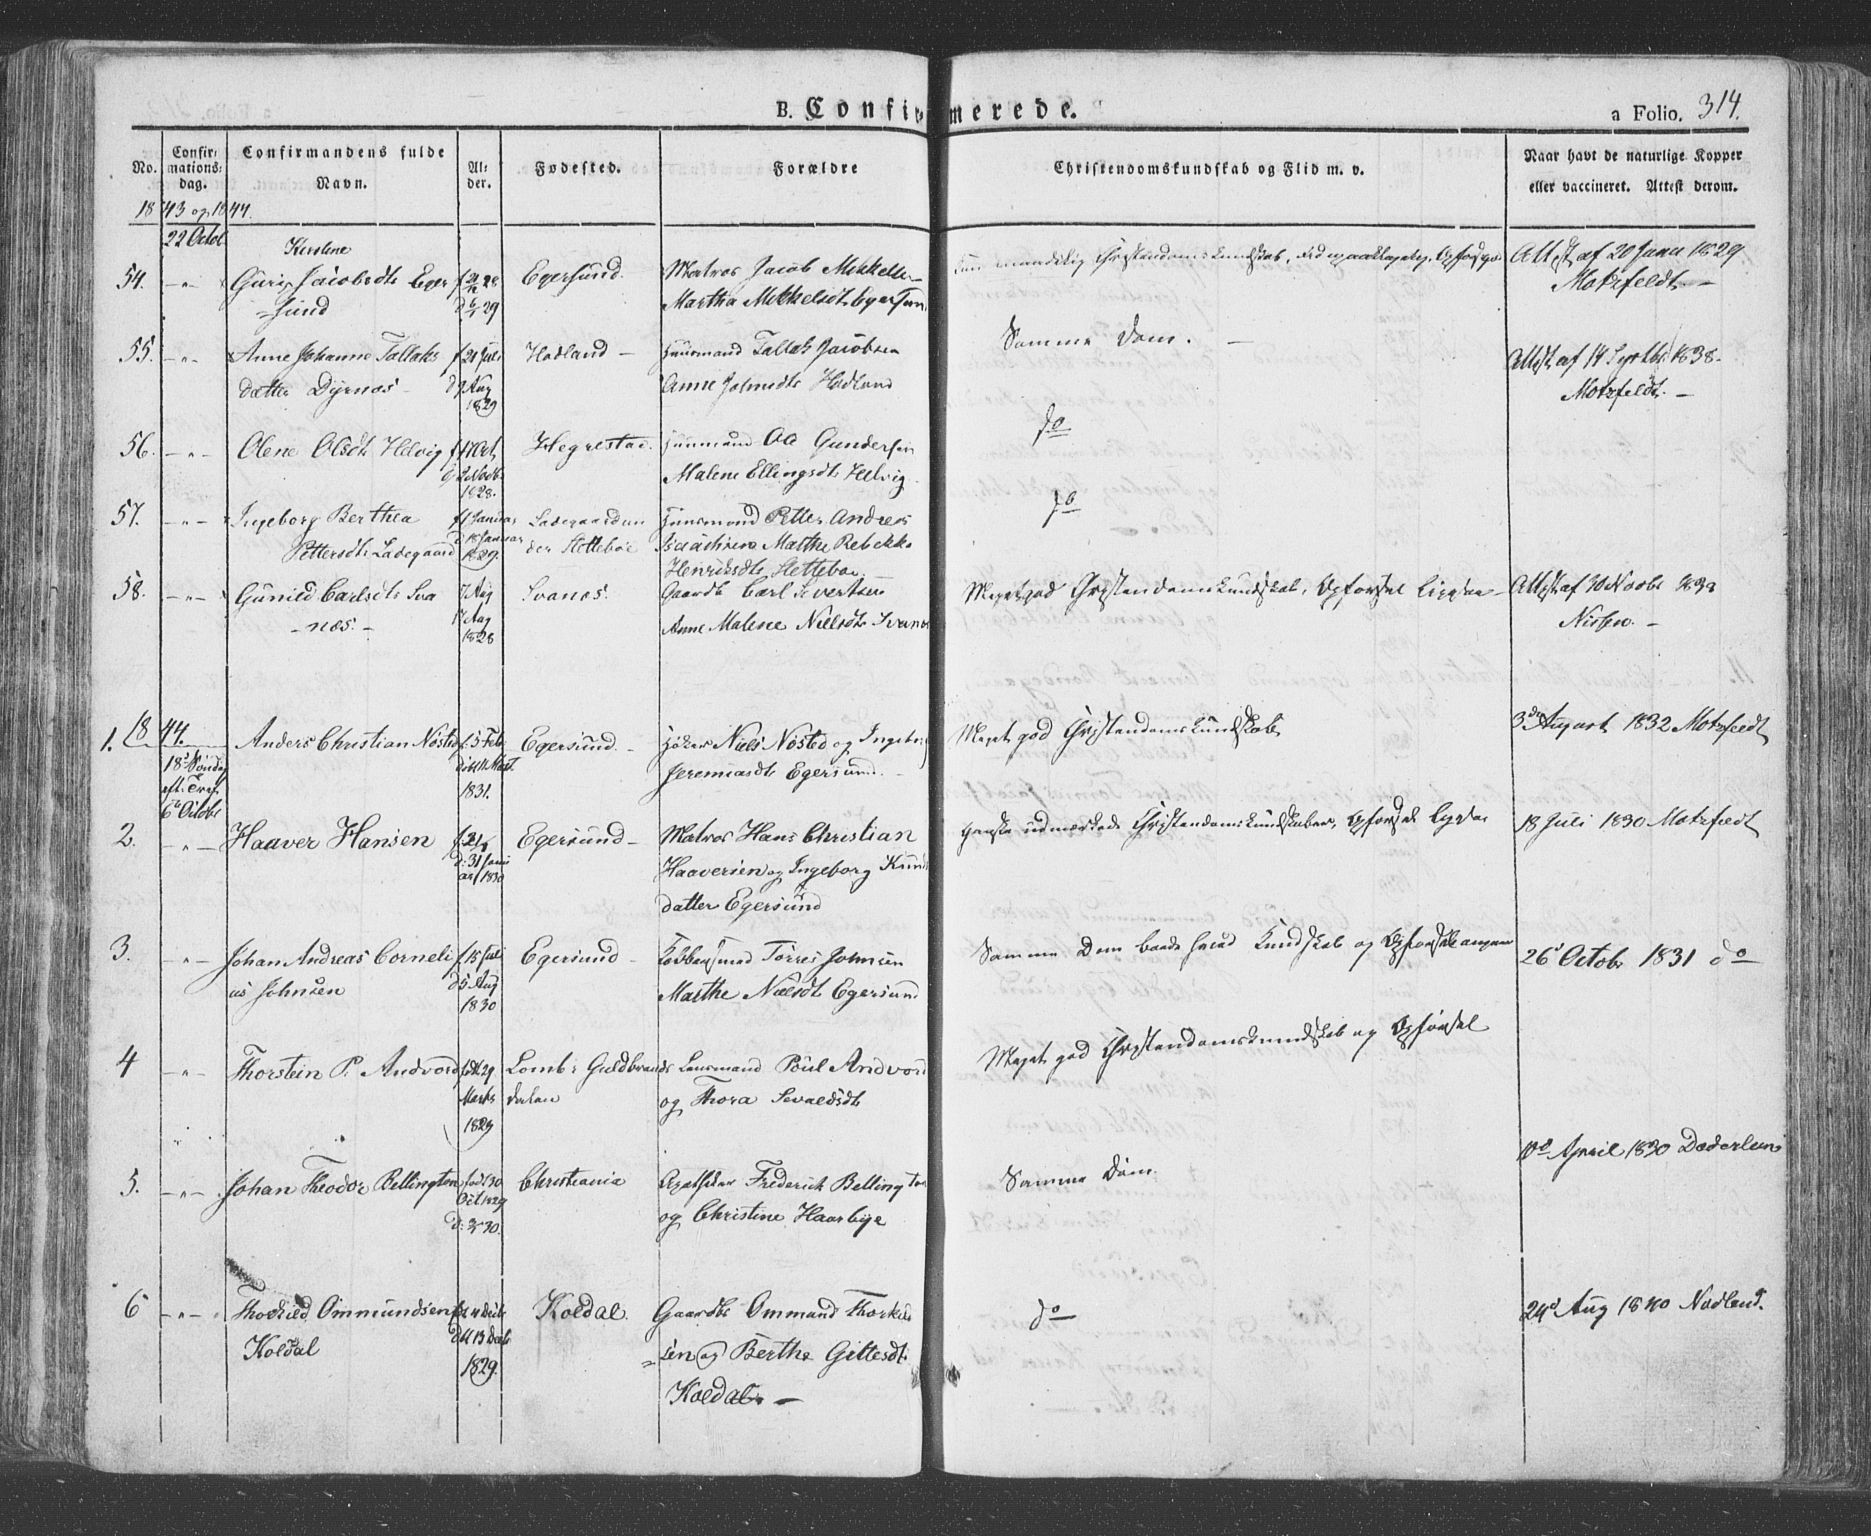 B. Confirmerede.
a Folio. 314.
No.
Confirmations:
dag.
Confirmandens fulde
Navn.
Al-
der.
Fødested.
Forældre
Christendomskundskab og Flid m. v.
Naar havt de naturlige Kopper
eller vaccineret. Attest derom.
1843 og 1844.
22 Octob.
54. -"-
Kirstine
Guri Jacobsdt Eger
sund
f 21/12 28
29
Egersund
Matros Jacob Mikkels
Martha Mikkelsdt Egersund
Christendomskundskab,
Attest af 20 Janu 1829
Motzfeldt -
55. -"-
Anne Johanne Tallaks
datter Dyrnæs -
f 21 Juli
d 9 Aug
1829
Hadland -
Huusmand Tallak Jacobsen
Anne Hadland
Samme Dom. -
Attest af 14 Septbr 1838.
Motzfeldt. -
56. -"-
Olene Olsdt Helvig
1828.
Hegrestad.
Huusmand Ole Gundersen
Malene Ellingsdt Helvig
do
57. -"-
Ingeborg Berthea
Pettersdt Ladegaard
f 1 Januar
d 18 Januar
1829.
Ladegaard un
der Slettebøe
Huusmand Petter Andreas
Isaachsen Marthe Rebekka
Henriksdt Slettebøe
do
58. -"-
Gunild Carlsdt Sva
-næs. -
7 Aug
17 Aug
1828
Svanæs.
Gaardb Carl Sivertsen
Anne Malene Nielsdt Svanæs
Meget god Christendomskundskab, Opførsel Ligesaa -
Attest af 30 Novbr
Nissen. -
1844.
1.
18de Søndag
eft. Tref.
6te Octobr
Anders Christian Nøsted
f. 5 Feb
døbt 11 Mart.
1831.
Egersund. -
Høker Niels Nøsted og Ingeborg
Jeremiasdt Egersund. -
Meget god Christendomskundskab
3de August 1832 Motzfeldt
2. -"-
Haaver Hansen
d: 31 Janu
ar 1830
Egersund -
Matros Hans Christian
Haaversen og Ingeborg Knuds
datter Egersund
Ganske udmærkede Christendomskundskaber, Opførsel Ligesaa
18 Juli 1830 Motzfeldt
3. -"-
Johan Andreas Corneli
us Johnsen
f. 15 Juli
d 5 Aug
1830
Egersund -
Kobbersmed Torres Johnsen
Marthe Nielsdt Egersund
Samme Dom baade hvad Kundskab og Opførsel angaaer
26de Octobr 1831 do
4 -"-
Thorstein P. Andvord
født 29
Marts
1829
Lomb: Guldbrands
dalen
Lensmand Poul Andvord
og Thora Sevaldsdt
Meget god Christendomskundskab og Opførsel
5. -"-
Johan Theodor Bellington
født 30
30.
Christiania
Frederick Bellington
og Christine Haarbye
Samme Dom.
10de April 1830 Dæderlein
6 -"-
Thorkild Ommundsen
Koldal
f 4 Decb
døbt 13 Decb
1829.
Koldal.
Gaardb Ommund Thorkild
sen og Berthe Gittesdt
Koldal. -
do
24de Aug 1840 Nodland.